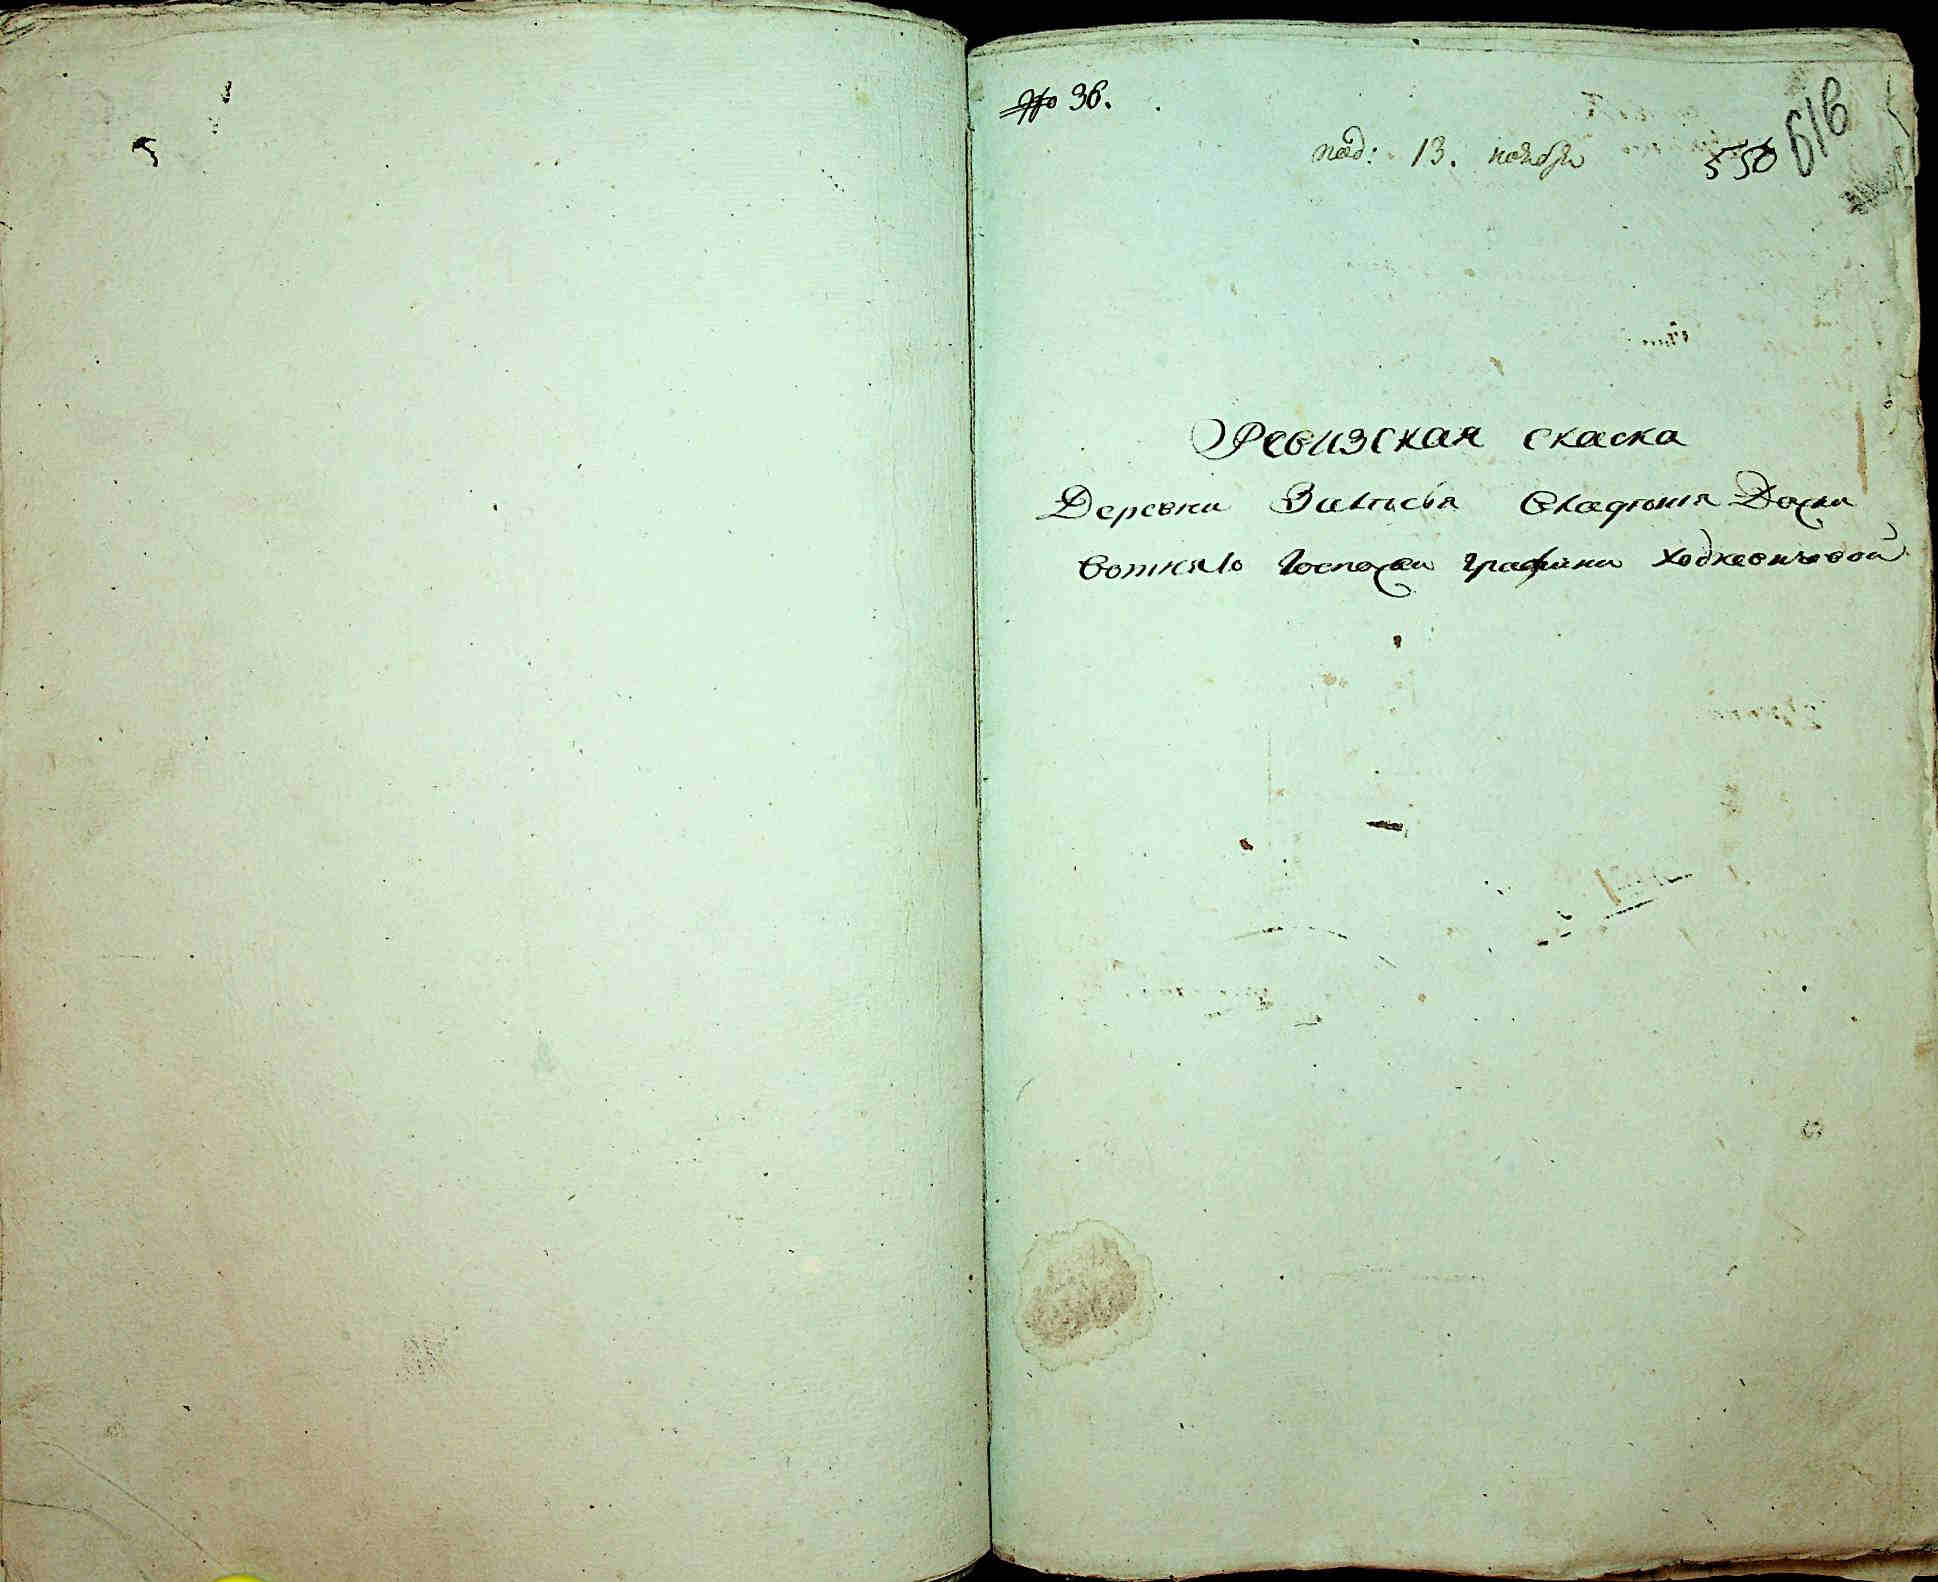 № 36.
под: 13. ноября
550
616
Ревизская скаска
Деревни Залесья Владѣния Дожи
вотняго Госпожи Графини Ходкевичовой